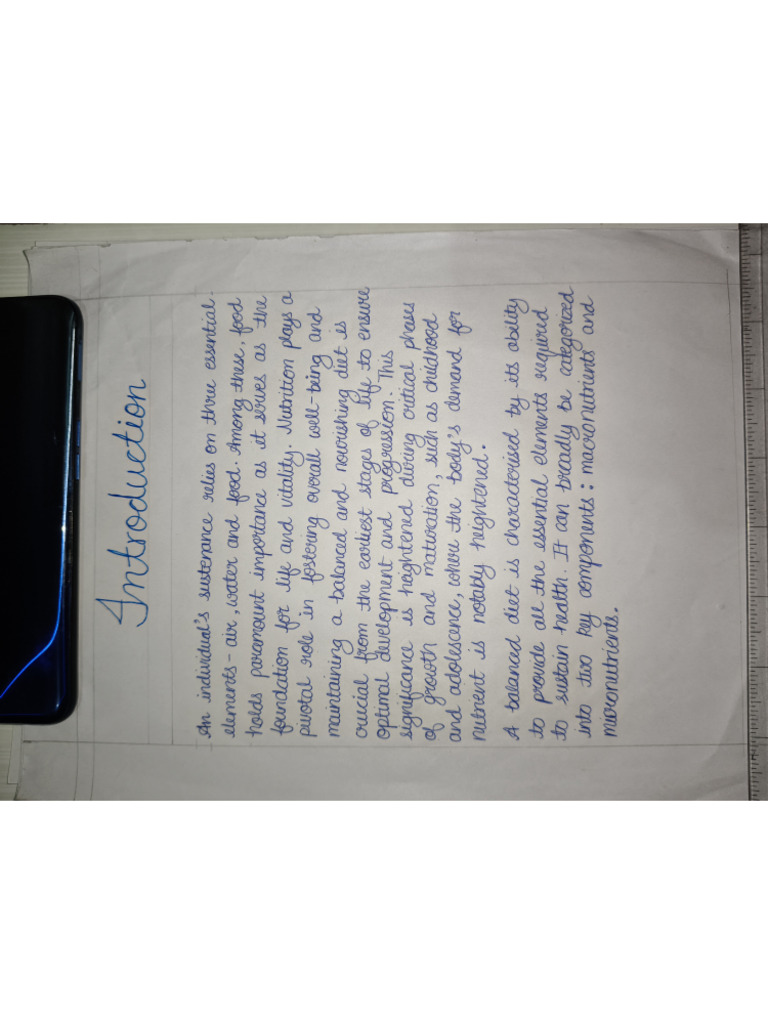 Introduction
An individual's sustenance relies on three essential
elements - air, water and food. Among these, food
holds paramount importance as it serves as the
foundation for life and vitality. Nutrition plays a
pivotal role in fostering overall well-being and
maintaining a balanced and nourishing diet is
crucial from the earliest stages of life to ensure
optimal development and progression. This
significance is heightened during critical phases
of growth and maturation, such as childhood
and adolescence, where the body's demand for
nutrient is notably heightened.
A balanced diet is characterised by its ability
to provide all the essential elements required
to sustain health. It can broadly be categorized
into two key components: macronutrients and
micronutrients.